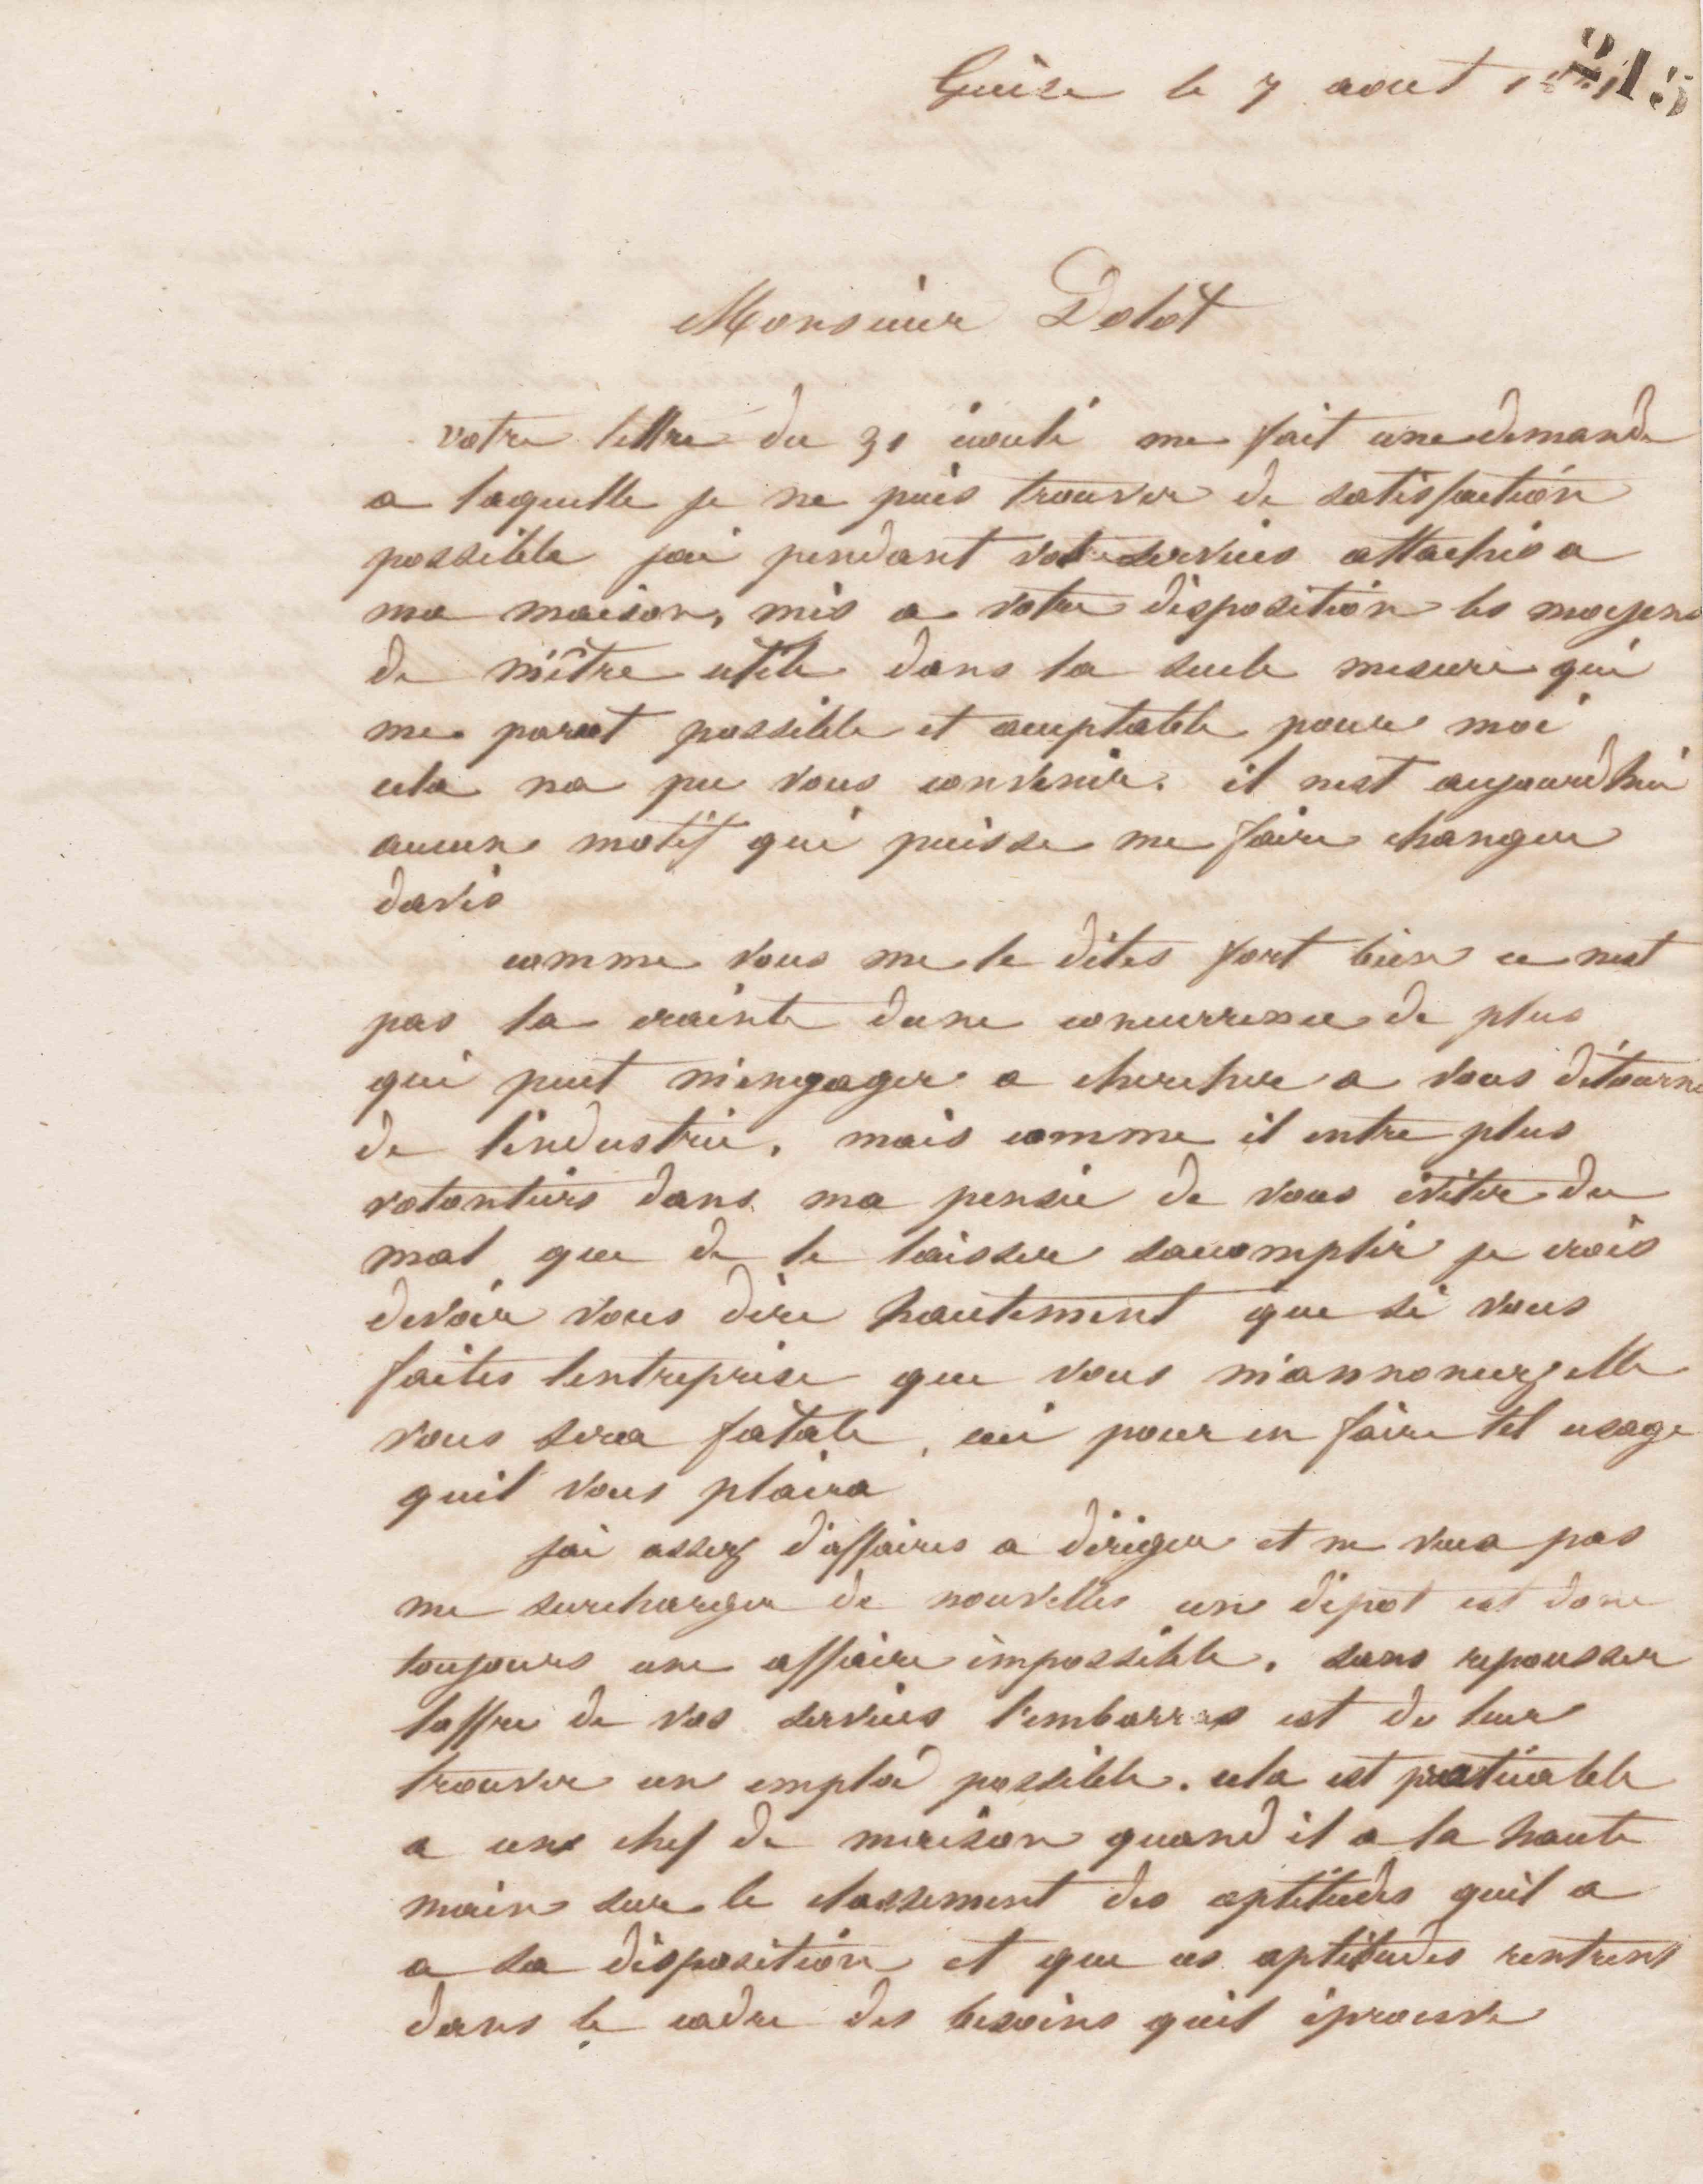 Guise le 7 aout
215
Monsieur Dolot
votre lettre du 31 écoulé me fait une demande
a laquelle je ne puis trouver de satisfaction
possible jai pendant vos services attachés a
ma maison, mis a votre disposition les moyens
de m'être utile dans la seule mesure qui
me parut possible et acceptable pour moi
cela na pu vous convenir. il nest aujourdhui
aucun motif qui puisse me faire changer
davis
comme vous me le dites fort bien ce nest
pas la crainte dune concurrence de plus
qui peut m'engager a chercher a vous détourner
de l'industrie, mais comme il entre plus
volontiers dans ma pensée de vous éviter du
mal que de le laisser saccomplir je crois
devoir vous dire hautement que si vous
faites lentreprise que vous m'annoncez elle
vous sera fatale, ceci pour en faire tel usage
quil vous plaira
jai assez d'affaires a diriger et ne veux pas
me surcharger de nouvelles un dépot est donc
toujours une affaire impossible. sans repousser
loffre de vos services l'embarras est de leur
trouver un emploi possible. cela est praticable
a un chef de maison quand il a la haute
main sur le classement des aptitudes quil a
a sa disposition et que ces aptitudes rentrent
dans le cadre des besoins quil éprouve